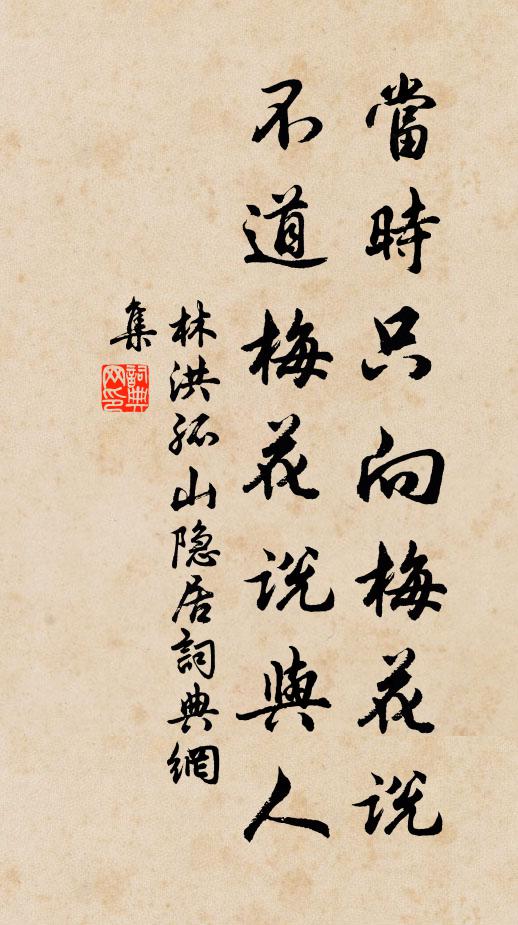 當時只向梅花說
不道梅花說與人
林洪孤山隐居詞典網
集
詞典網印